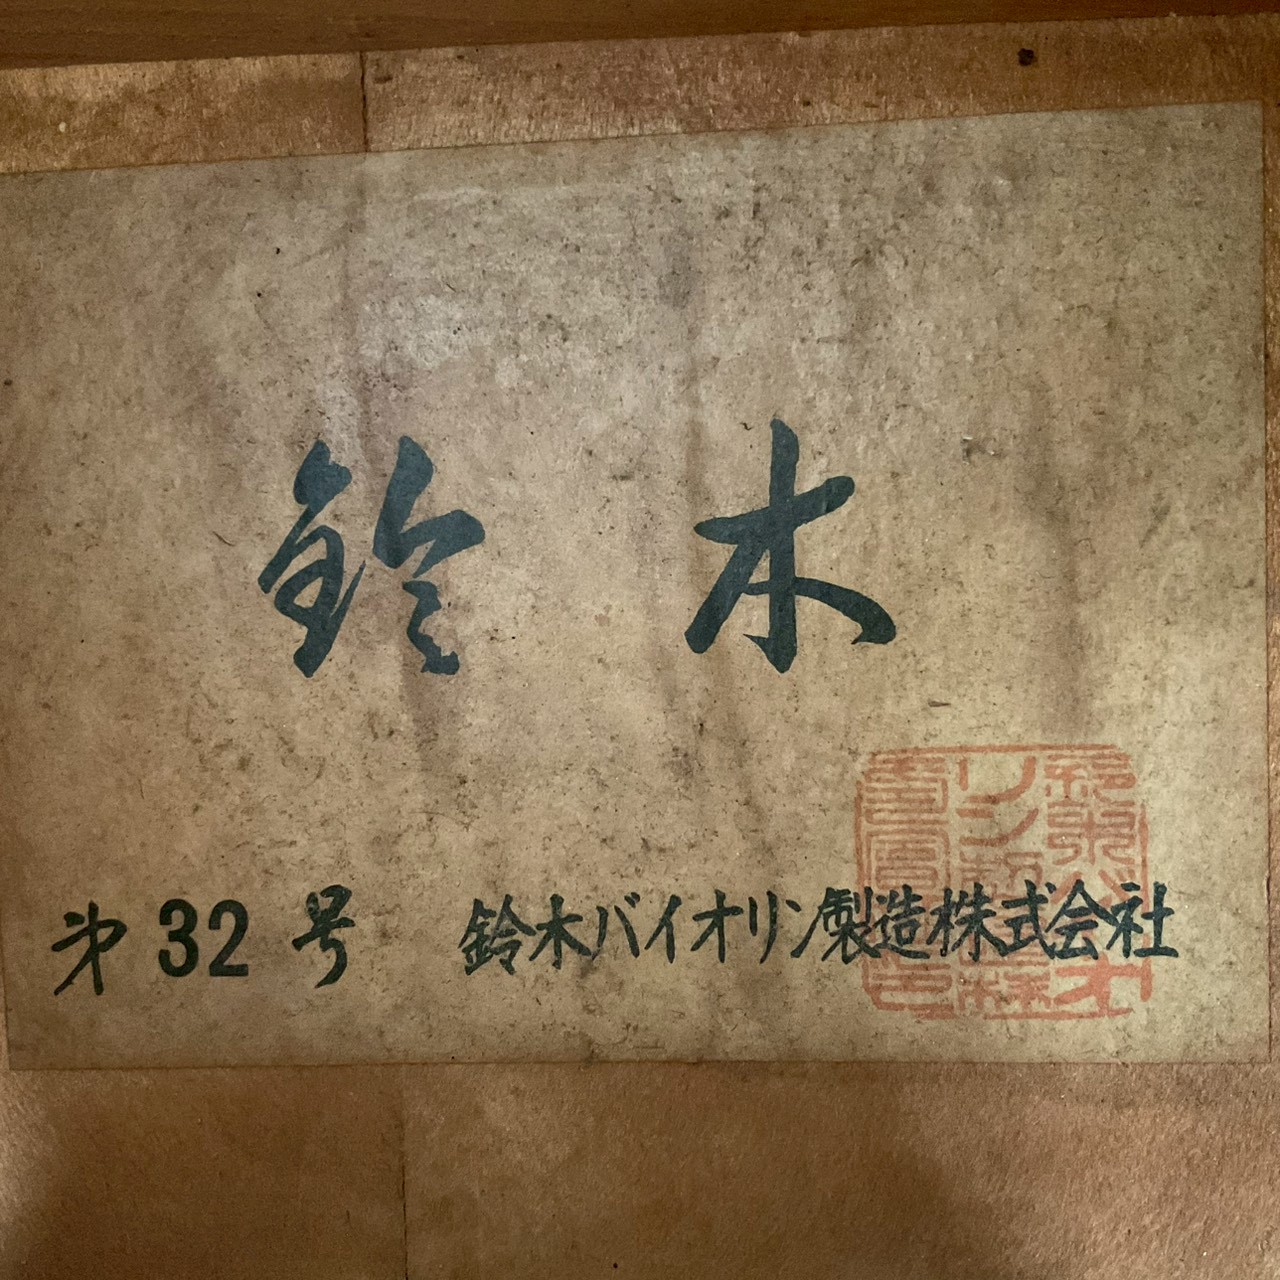 鈴木
第32号 鈴木バイオリン製造株式会社